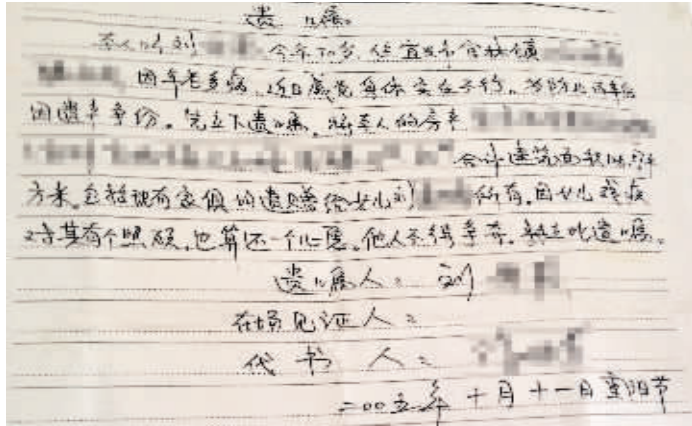 遗嘱
本人叫刘 今年70岁,住宜兴市官林镇
因年老多病,近日感觉身体实在不行,为防止
因遗产争份。先立下遗嘱,将本人的房产
合计建筑面积 平
方米,包括现有家俱均遗赠给女儿刘 所有,因女儿残疾
其有个照顾,也算还一个心愿,他人不得争夺,特立此遗嘱。
遗嘱人:刘
在场见证人:
代书人:
二00五年十月十一日重阳节